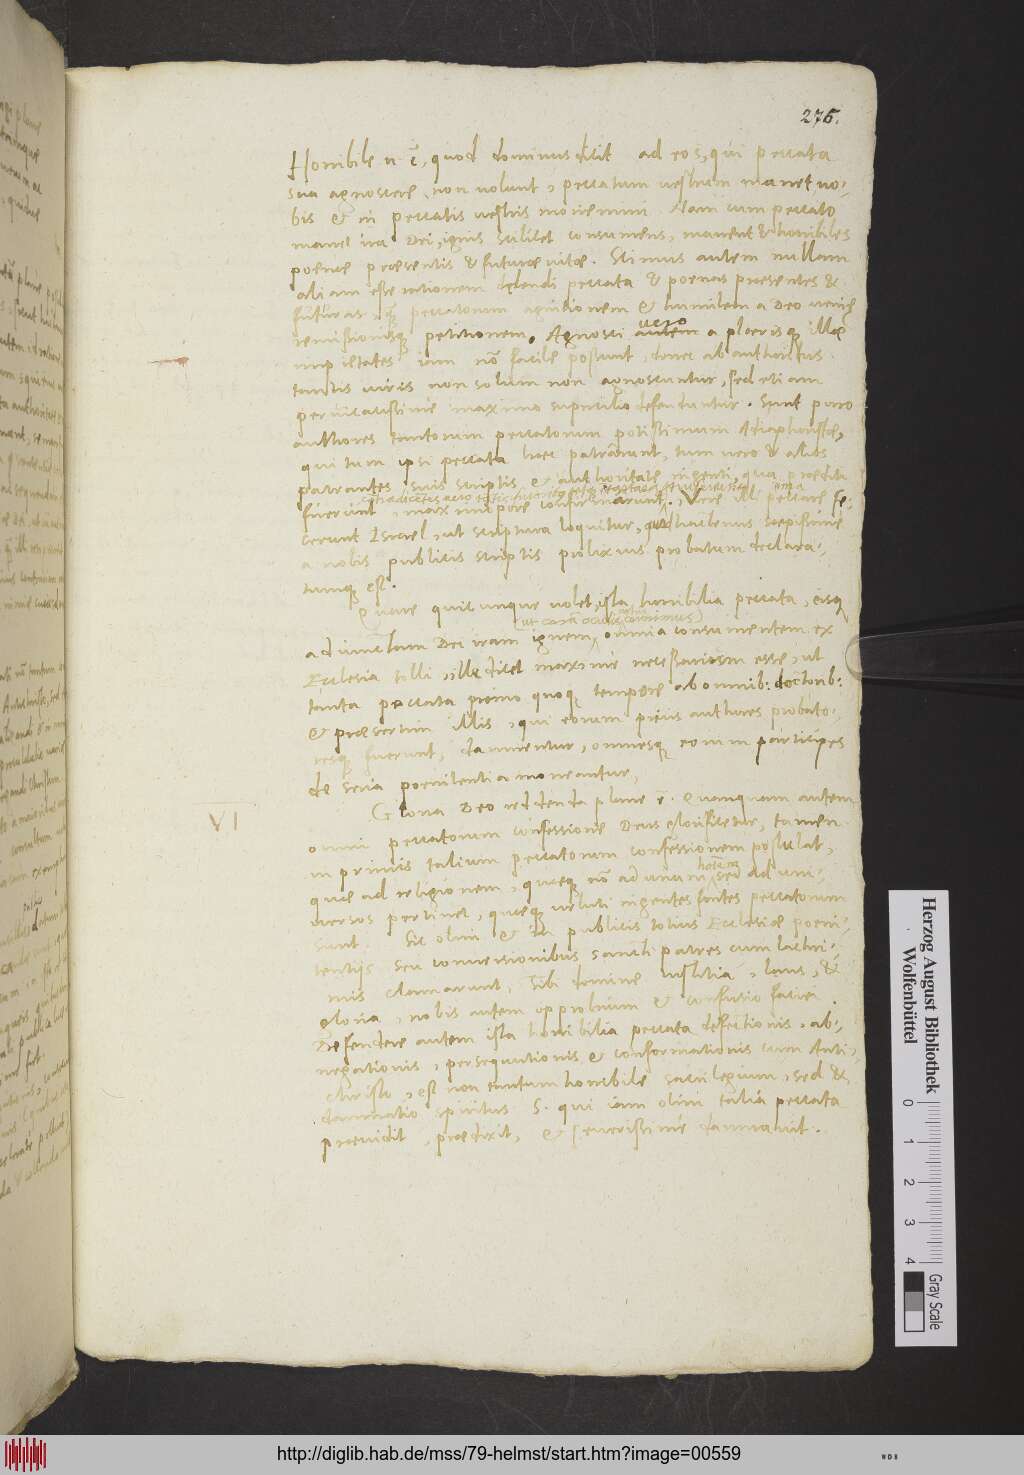 276.
Horribile n ē, quod dominus dicit ad eos, qui peccata
sua agnoscere non volunt, peccatum vestrum manet, vo-
bis & in peccatis vestris moriemini. Nam cum peccato
manet ira Dei, ignis scilicet consumens, manent & horribiles
poenae praesentis & futurae vitae. Scimus autem nullam
aliam esse rationem delendi peccata & poenas praesentes &
futuras, quam peccatorum agnitionem & humilem a Deo veniae
remissionisque petitionem. Agnosci autem vero a plerisque illae
impietates iam nō facile possunt, donec ab authoribus
tantis viris non solum non agnoscuntur, sed etiam
pervicacissime maximo supercilio defenduntur. Sunt porro
authores tantorum peccatorum potissimum Adiaphoristae,
qui tum ipsi peccata haec patrarunt, tum vero & alios
patrantes suis scriptis & authoritate ingenti, qua praediti
fuerunt, maximopere confirmarunt. Vere illi peccare fe-
cerunt Israel, ut scriptura loquitur, hactenus saepissime
a nobis publicis scriptis prolixius probatum declara-
tumque est.
Quare quicunque volet, ista horribilia peccata, eisque
(ut coram oculis cernimus)
adiunctam Dei iram ignem, omnia consumentem ex
Ecclesia tolli, ille dicet maxime necessarium esse, ut
tanta peccata primo quoque tempore ab omnib: doctorib:
& praesertim illis, qui eorum prius authores probato-
resque fuerunt, damnentur, omnesque eorum participes
de seria poenitentia moneantur.
VI
Gloria Deo reddenda plane ē. Quanquam autem
omni peccatorum confessione Deus glorificetur, tamen
in primis talium peccatorum confessionem postulat,
quae ad religionem, quaeque nō ad unum hominem, sed ad uni-
versos pertinet, quaeque veluti ingentes fontes peccatorum
sunt. Sic olim & in publicis totius Ecclesiae poeni-
tentiis seu conversionibus sancti patres cum lachri-
mis clamarunt, Tibi domine iustitia, laus, &
gloria, nobis autem opprobrium & confusio faciei.
Defendere autem ista horribilia peccata defectionis, ab-
negationis, persequutionis & conformationis cum Anti-
christo, est non tantum horribile sacrilegium, sed &
damnatio spiritus S. qui iam olim talia peccata
praevidit, praedixit, & severissime damnavit.
Herzog August Bibliothek
Wolfenbüttel
0 1 2 3 4
Gray Scale
http://diglib.hab.de/mss/79-helmst/start.htm?image=00559
WDB